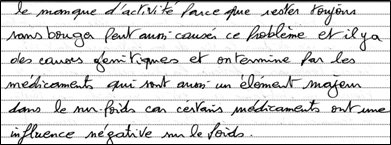 le manque d'activité parce que rester toujours
sans bouga peut aussi causér ce problème et il ya
des causes génitiques et ontermine par les
médicaments qui sont aussi un élément majeur
dans le sur-poids car cértains médicaments ont une
influence négative sur le poids.